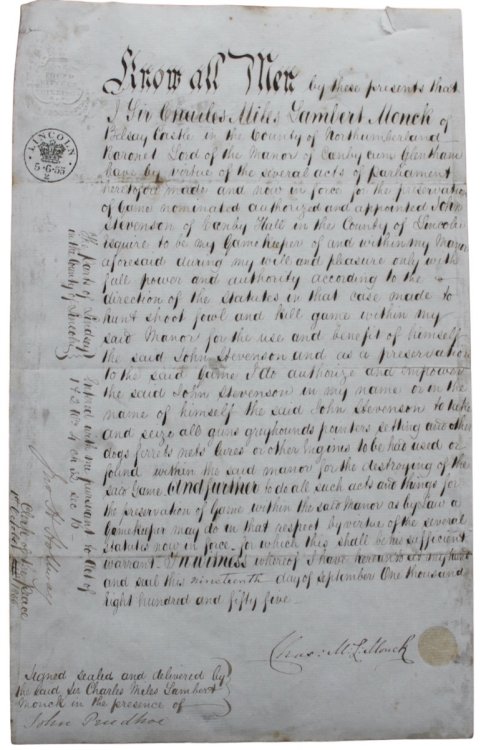 LINCOLN
5·6·55
Know all Men by these presents that
I Sir Charles Miles Lambert Monck of
Belsay Castle in the County of Northumberland
Baronet Lord of the Manor of Canby cum Glentham
have by virtue of the several acts of Parliament
heretofore made and now in force for the preservation
of Game nominated authorized and appointed John
Stevenson of Canby Hall in the County of Lincoln
Esquire to be my Gamekeeper of and within my Manor
aforesaid during my will and pleasure only with
full power and authority according to the
direction of the Statutes in that case made to
hunt shoot fowl and kill game within my
said Manor for the use and benefit of himself
the said John Stevenson and as a preservation
to the said Game I do authorize and empower
the said John Stevenson in my name or in the
name of himself the said John Stevenson to take
and seize all guns greyhounds pointers setting and other
dogs ferrets nets or other Engines to be had used or
found within the said manor for the destroying of the
said Game And further to do all such acts and things for
the preservation of Game within the said Manor as by law a
Gamekeeper may do in that respect by virtue of the several
Statutes now in force for which this shall be his sufficient
warrant In witness whereof I have hereunto set my hand
and seal this nineteenth day of September One thousand
Eight hundred and fifty five
Chas: M. L. Monck
Signed sealed and delivered by
the said Sir Charles Miles Lambert
Monck in the presence of
John Prudhoe
The Parts of Lindsey
in the County of Lincoln
Entered with me pursuant to Act of
Clerk of the Peace